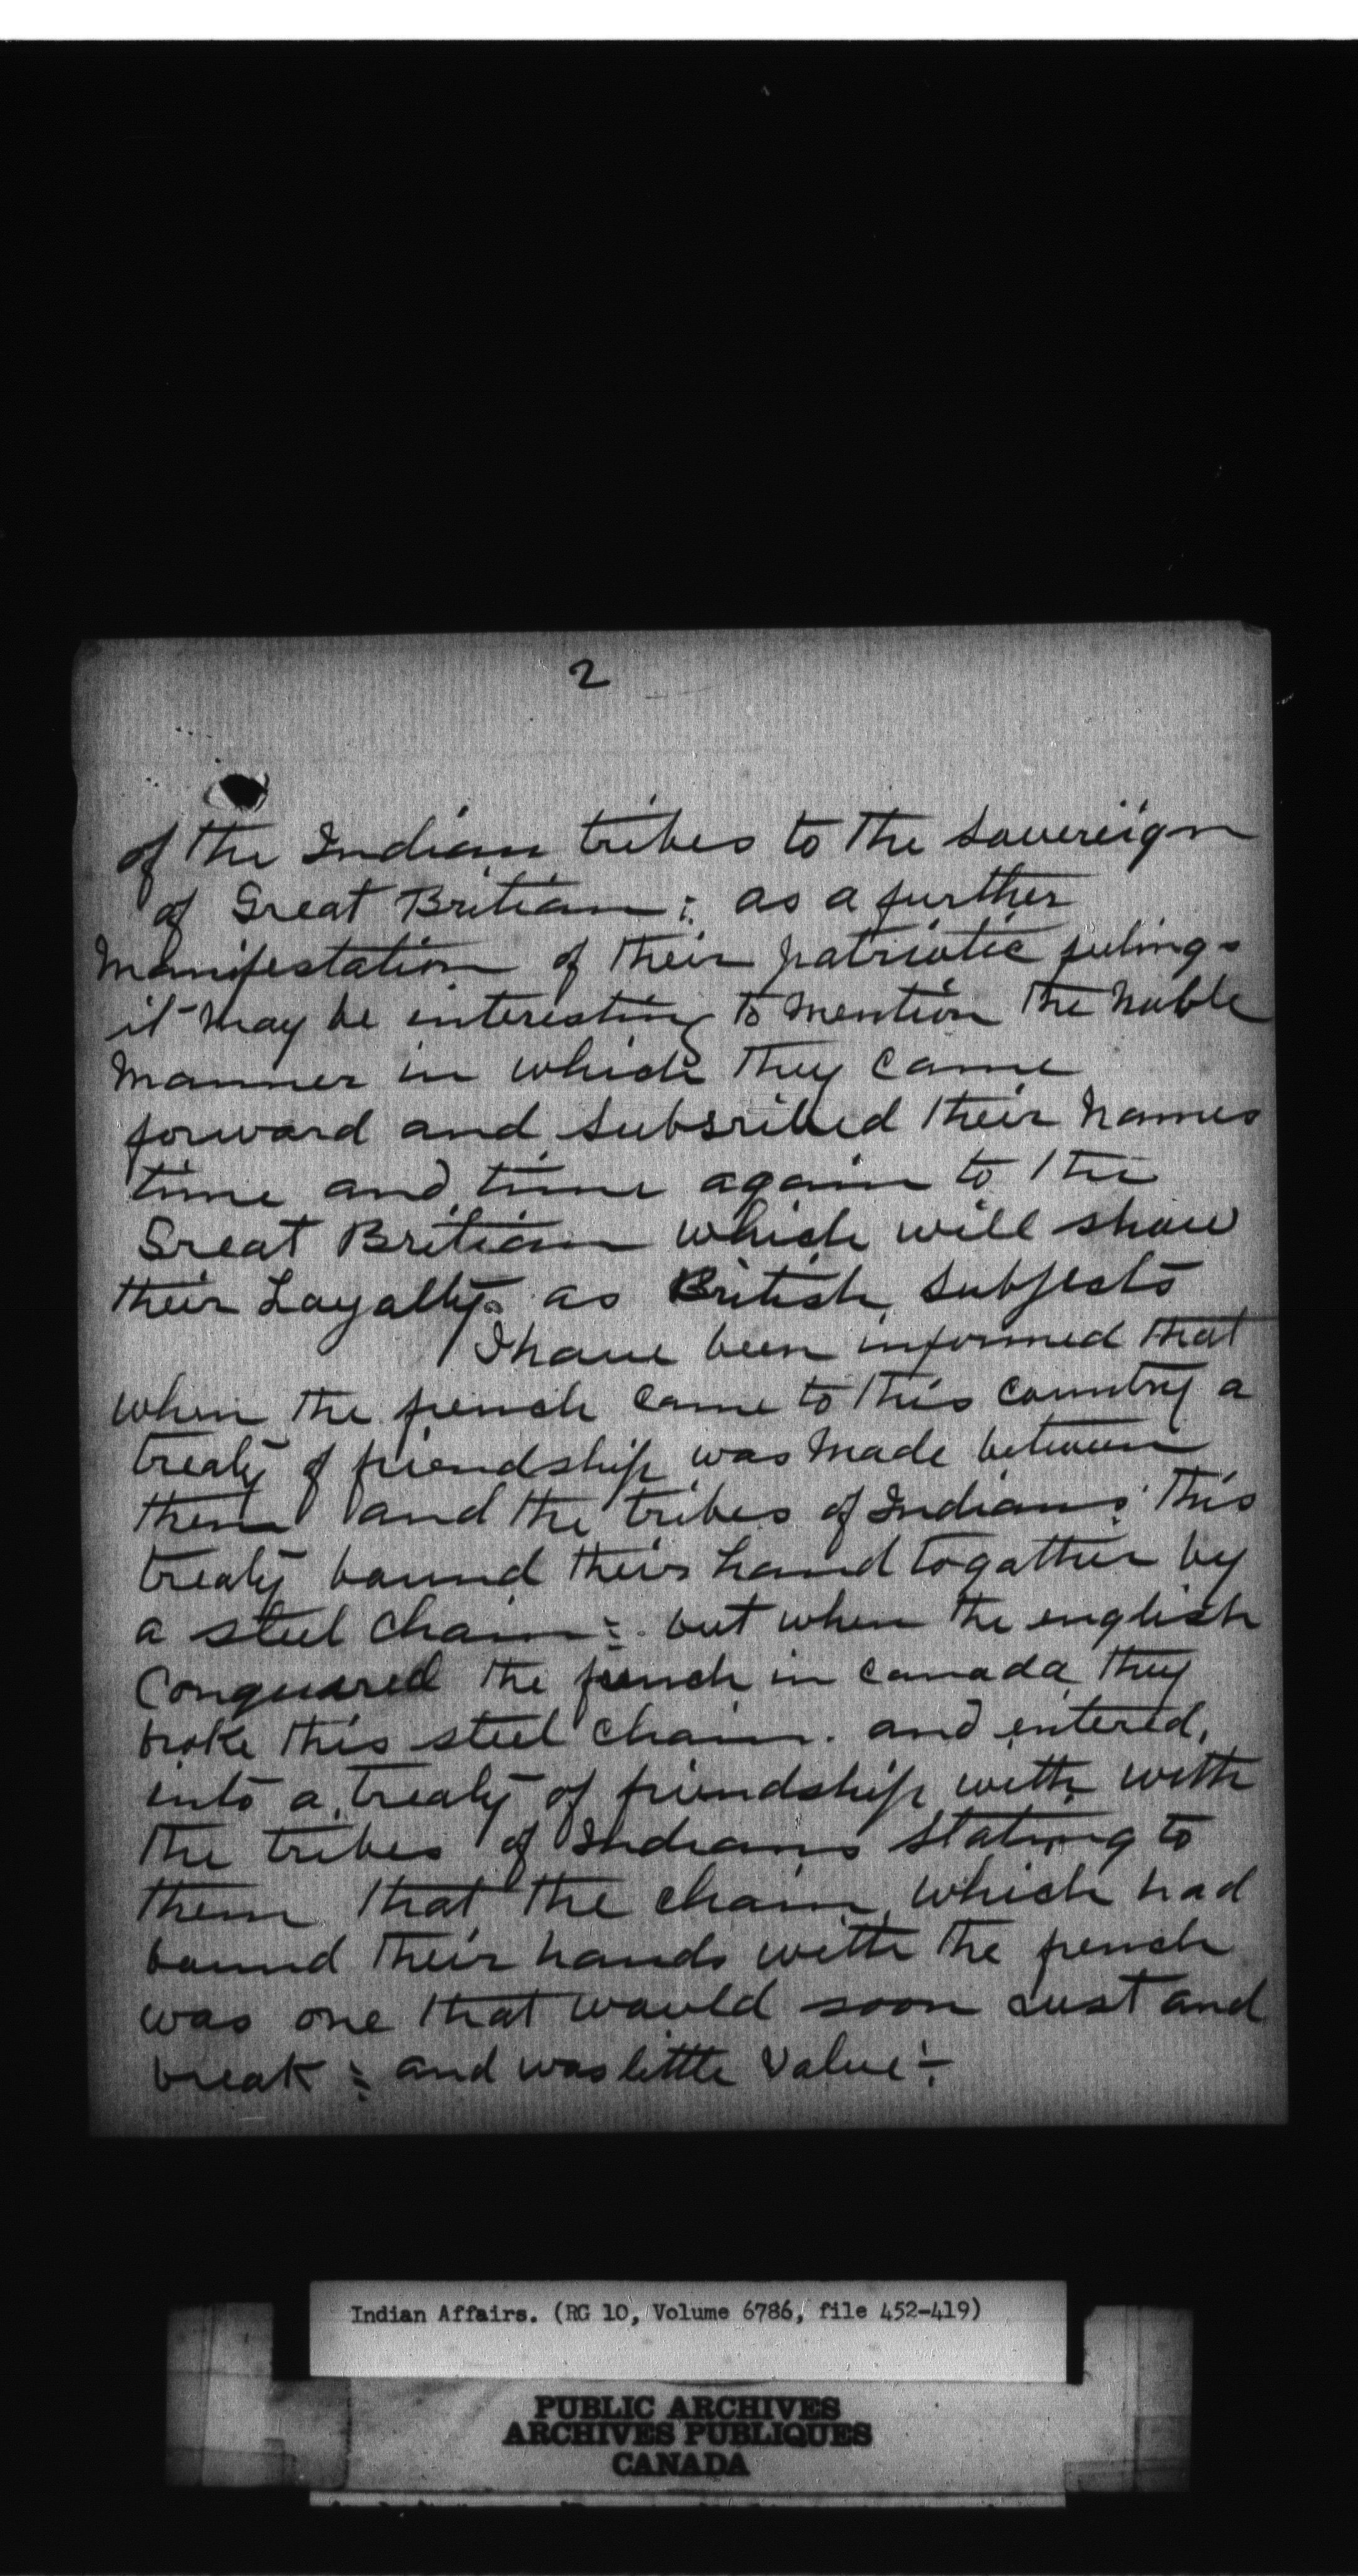 2
of the Indian tribes to the Sovereign
of Great Britian; as a further
Manifestation of their patriotic feelings
it may be interesting to mention the Noble
Manner in which they came
forward and Subsribed their Names
time and time again to the
Great Britian which will show
their Loyalty as British Subjects
I have been informed that
when the french came to this Country a
treaty of friendship was Made between
them and the tribes of Indians: this
treaty bound their hand togather by
a steel chain: but when the english
Conquared the french in Canada they
broke this steel chain. and entered,
into a treaty of friendship with with
the tribes of Indians stating to
them that the chain which had
bound their hands with the french
was one that would soon rust and
break: and was little value:-
Indian Affairs. (RG 10, Volume 6786, file 452-419)
PUBLIC ARCHIVES
ARCHIVES PUBLIQUES
CANADA